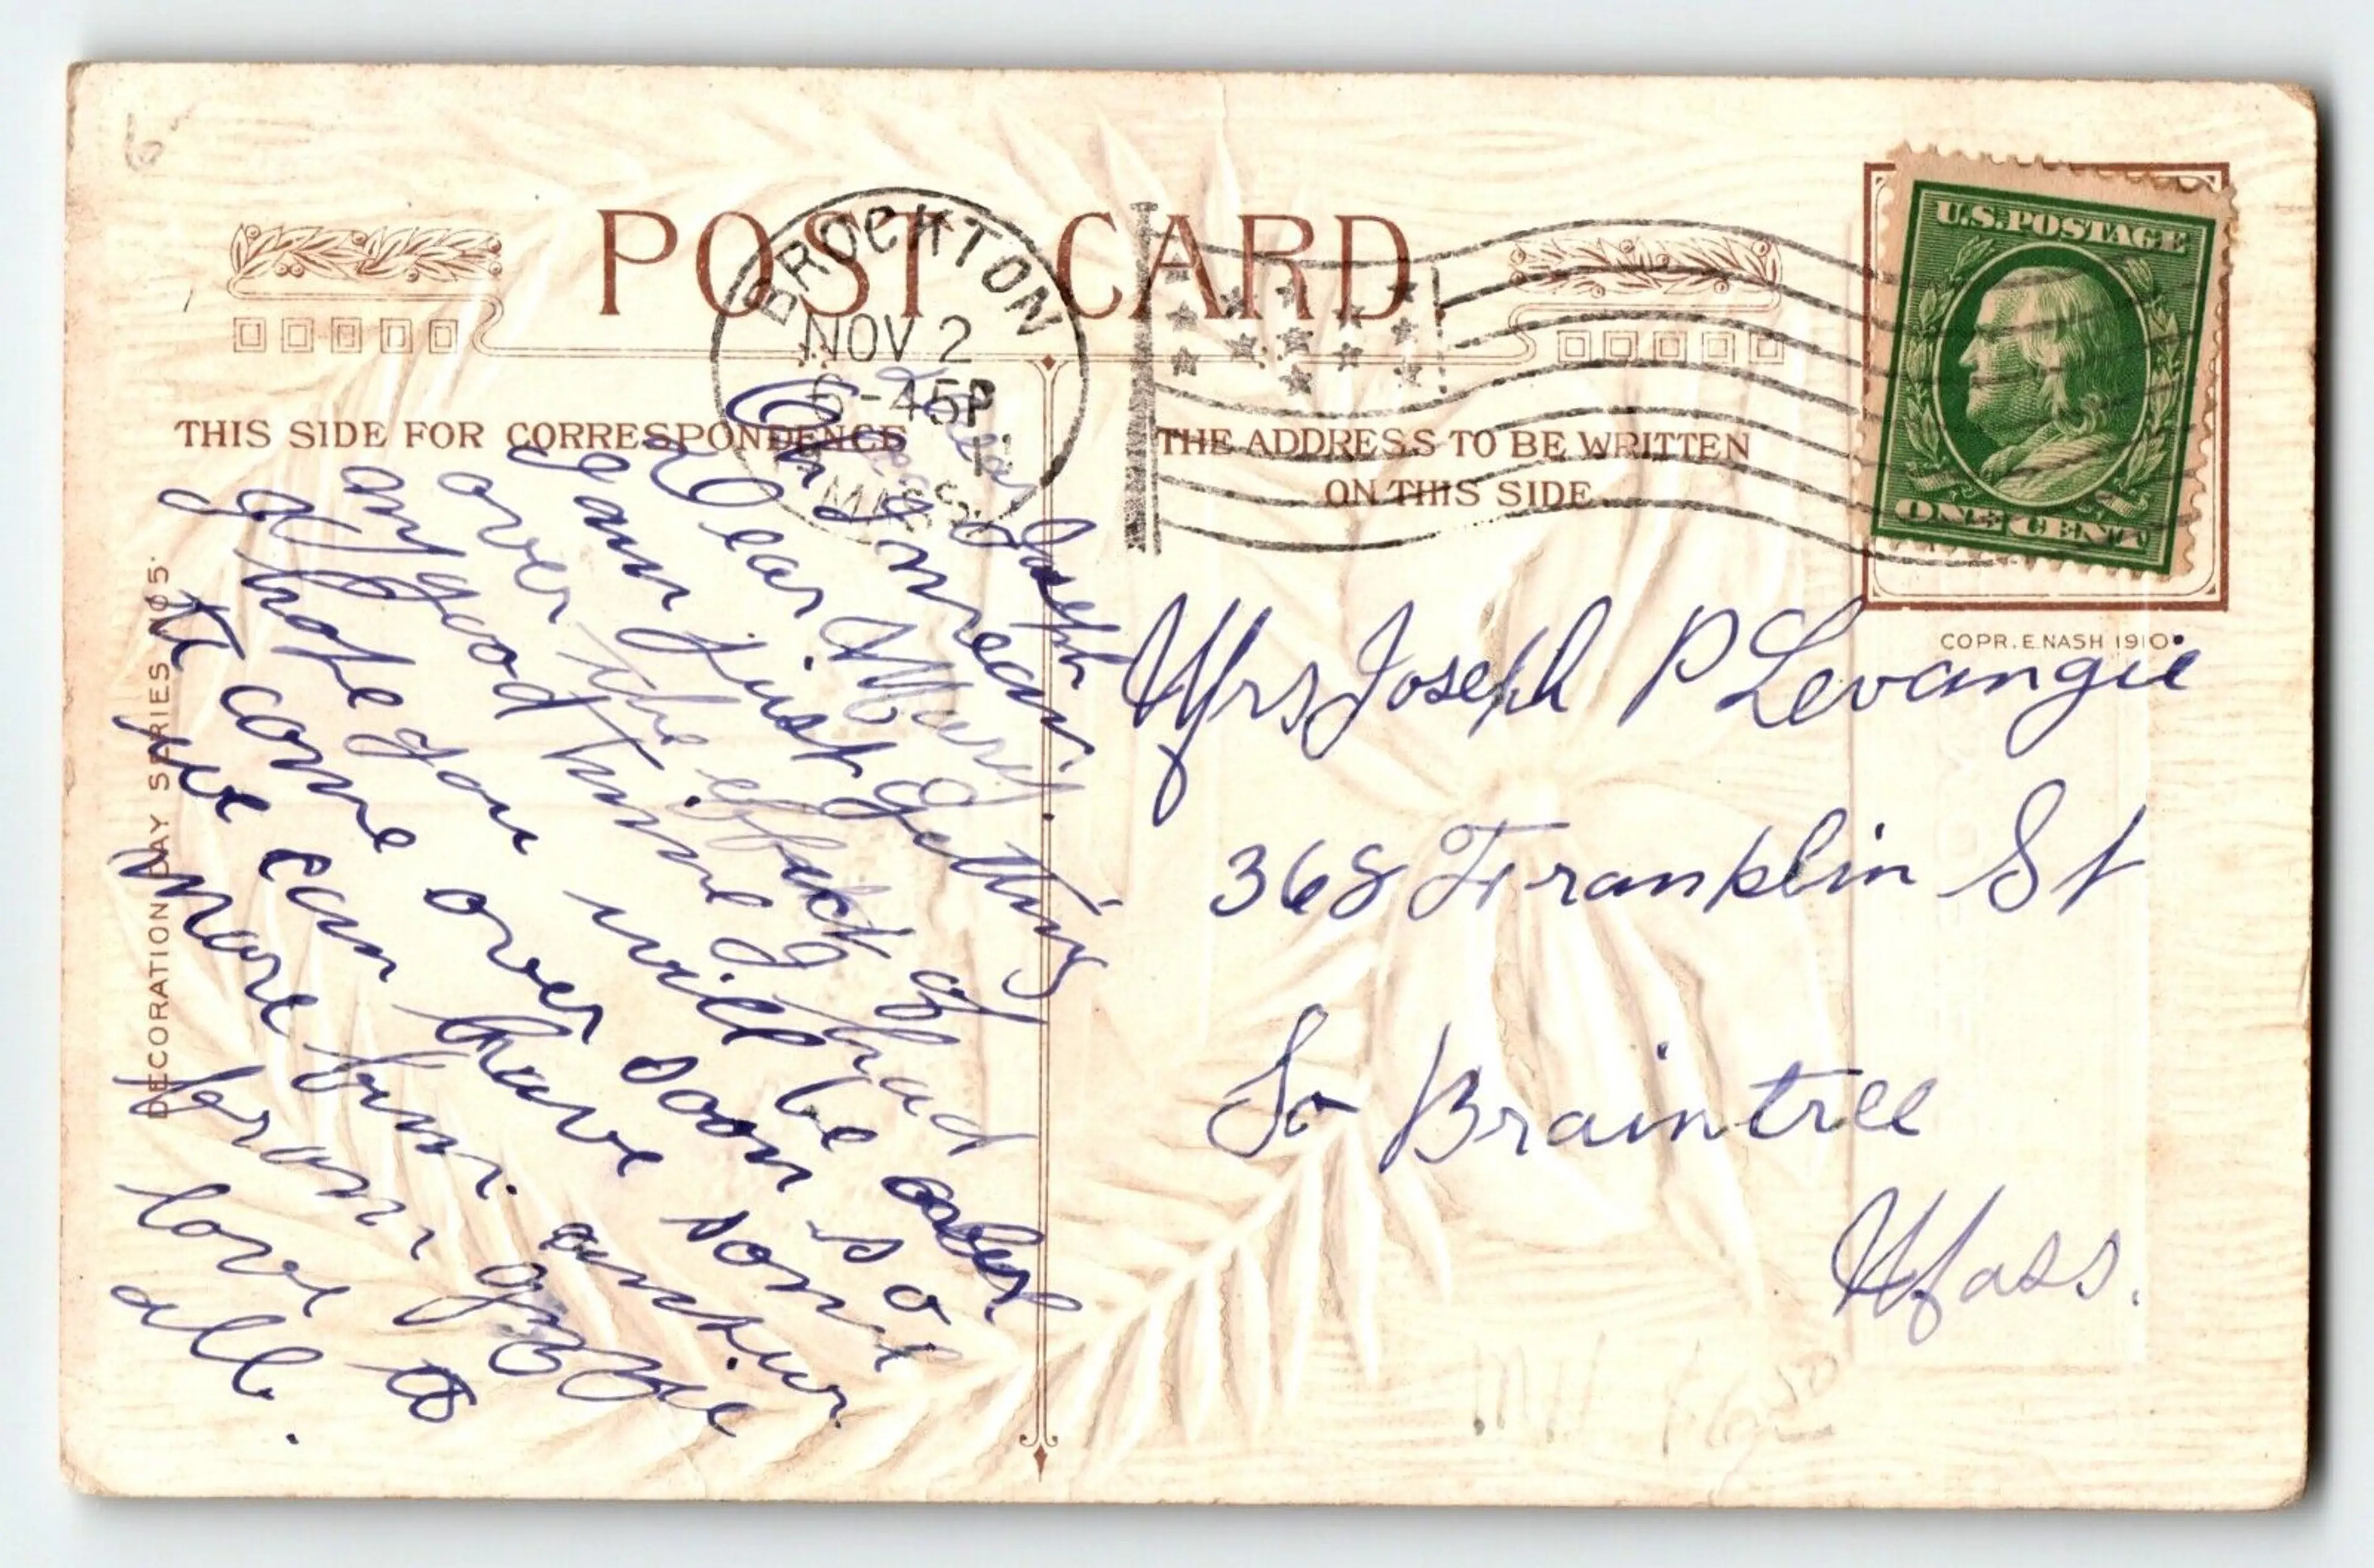 POST CARD
BROCKTON
NOV 2
6-45P
MASS.
U.S. POSTAGE
ONE CENT
THIS SIDE FOR CORRESPONDENCE
THE ADDRESS TO BE WRITTEN
ON THIS SIDE
COPR. E. NASH 1910
DECORATION DAY SERIES No 5.
Dear Joseph
I mean
Dear Mary.
I am just getting
over the effects of
any good time I had
hope you will be
to come over soon so
we can have some
more fun. answer.
from
love to
all.
Mrs Joseph P Levangie
368 Franklin St
So Braintree
Mass.